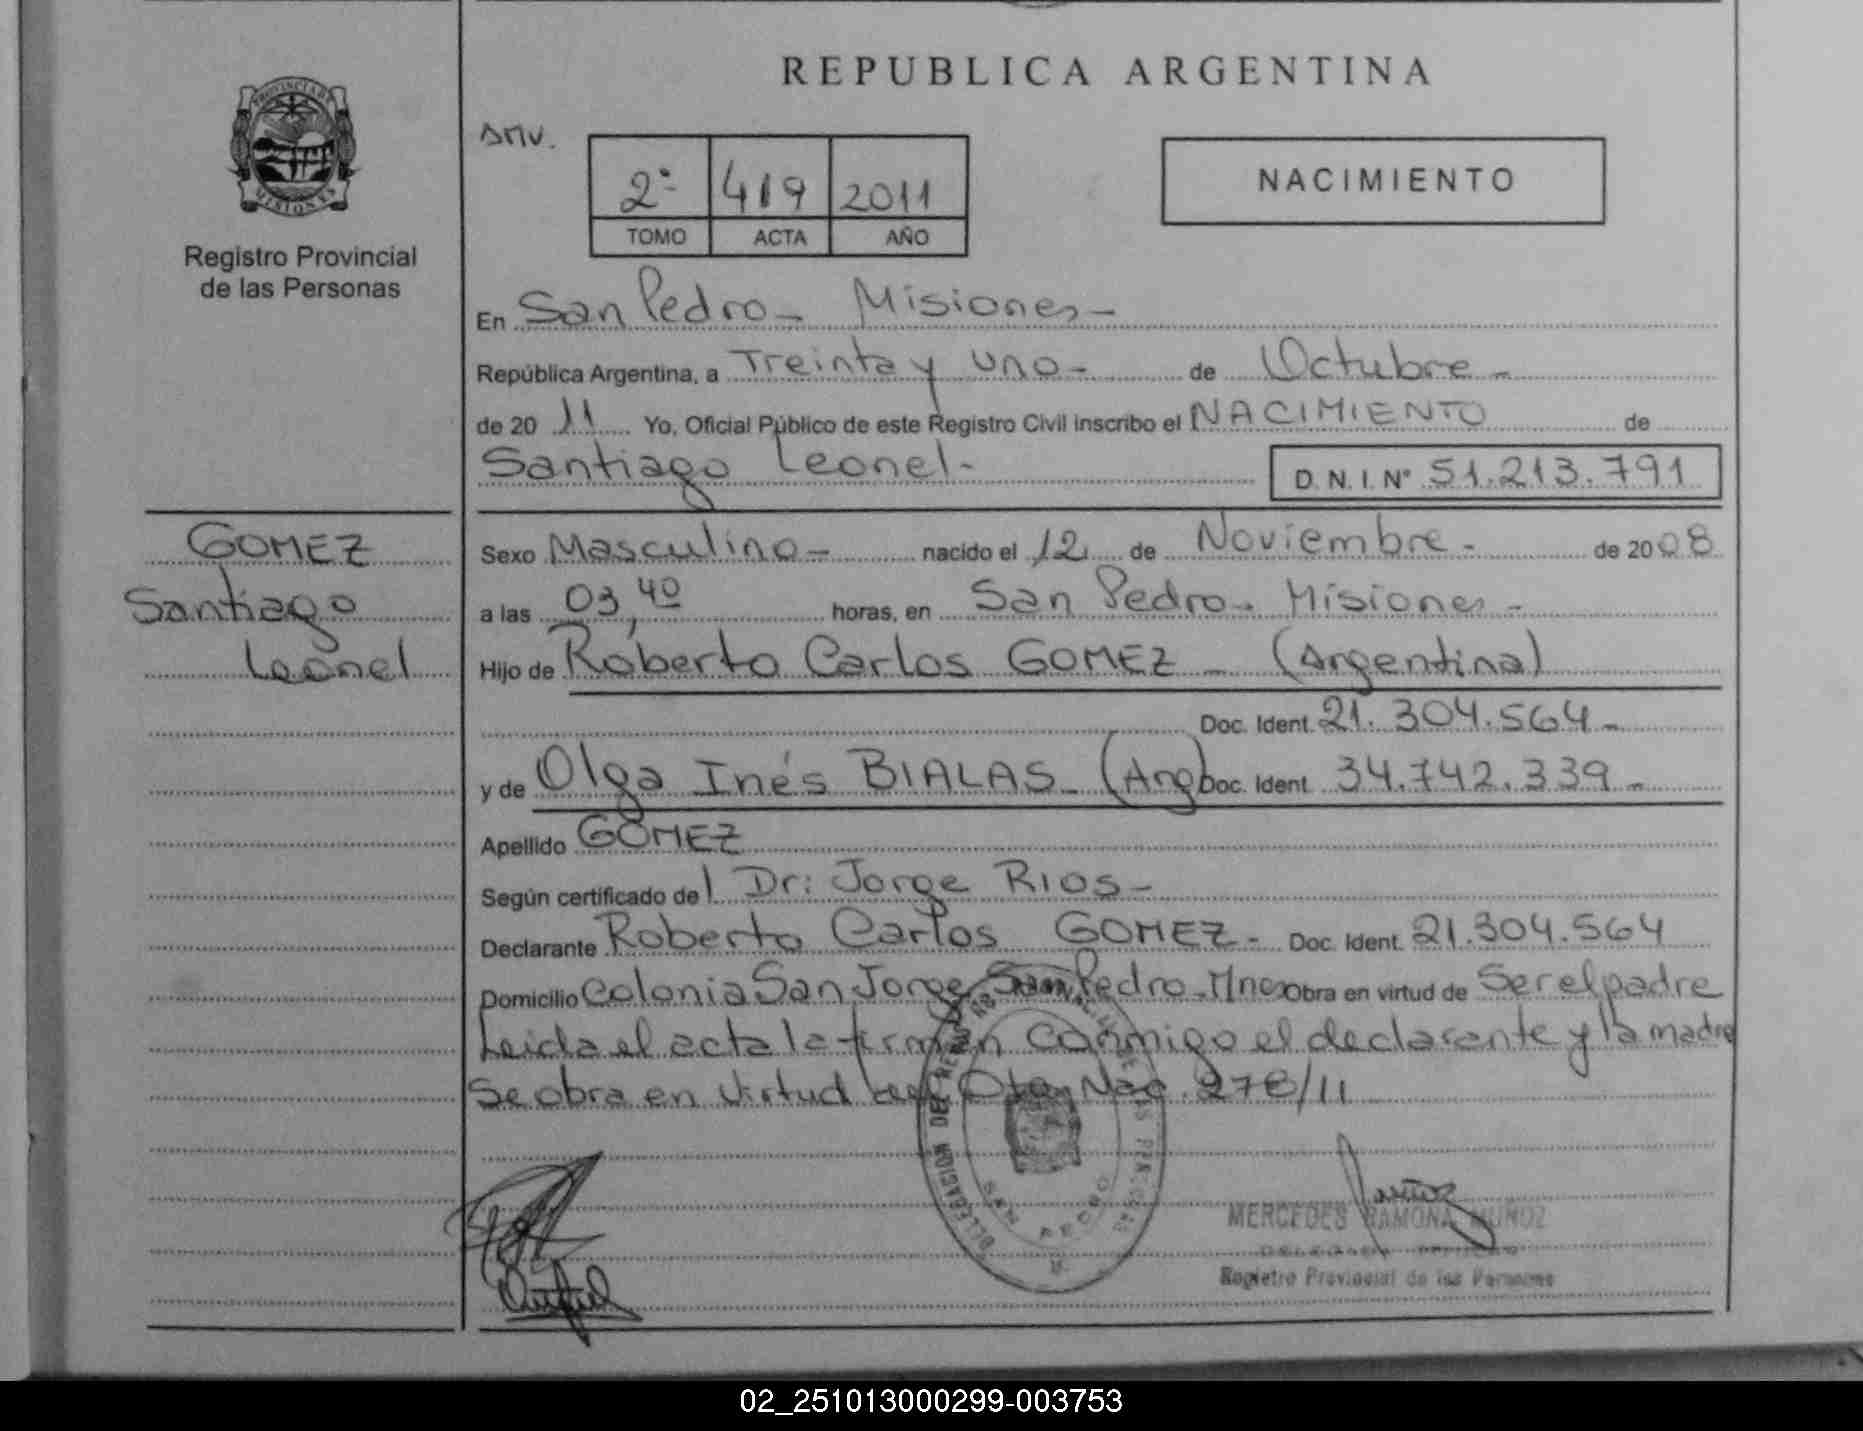 REPUBLICA ARGENTINA
PROVINCIA DE
MISIONES
Registro Provincial
de las Personas
SMV.
2º 419 2011
TOMO ACTA AÑO
NACIMIENTO
En San Pedro - Misiones -
República Argentina, a Treinta y uno - de Octubre -
de 20 11 Yo, Oficial Público de este Registro Civil inscribo el NACIMIENTO de
Santiago Leonel - D.N.I. Nº 51.213.791
GOMEZ
Santiago
Leonel
Sexo Masculino - nacido el 12 de Noviembre - de 2008
a las 03,40 horas, en San Pedro - Misiones -
Hijo de Roberto Carlos GOMEZ - (Argentina)
Doc. Ident. 21.304.564 -
y de Olga Inés BIALAS - (Arg) Doc. Ident. 34.742.339 -
Apellido GOMEZ
Según certificado del Dr: Jorge RIOS -
Declarante Roberto Carlos GOMEZ - Doc. Ident. 21.304.564
Domicilio Colonia San Jorge San Pedro - Mnes Obra en virtud de Ser el padre
Leida el acta la firman conmigo el declarante y la madre
Se obra en virtud Nac. 278/11
DELEGACION DEL
MERCEDES RAMONA MUÑOZ
Registro Provincial de las Personas
02_251013000299-003753